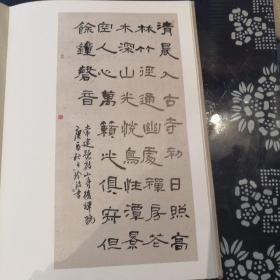 清晨入古寺初日照高
林竹逕通幽處禪房花
木深山光悅鳥性潭景
空人心萬籟此俱寂但
餘鐘磬音
常建題破山寺後禪院